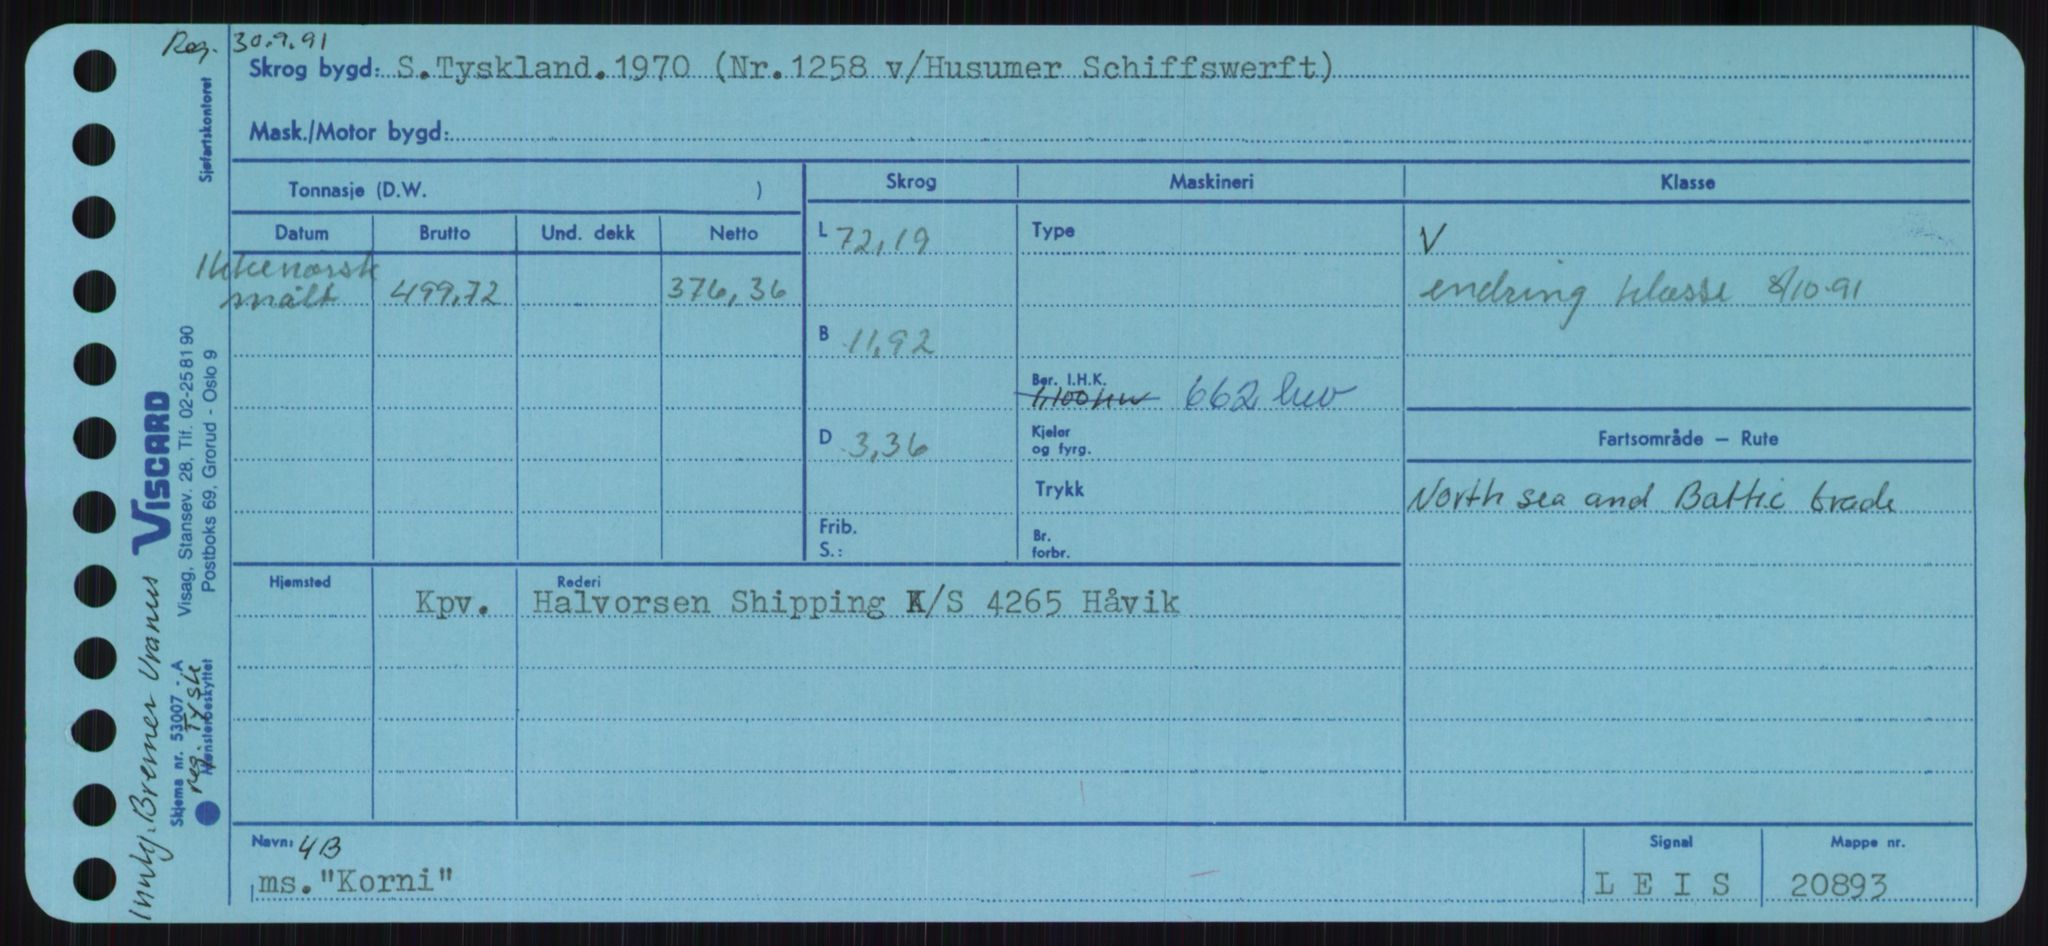 Reg. 30.9.91
Skrog bygd: S.Tyskland.1970 (Nr.1258 v/Husumer Schiffswerft)
Mask./Motor bygd:
Tonnasje (D.W. )
Skrog
Maskineri
Klasse
Datum
Brutto
Und. dekk
Netto
L 72,19
Type
V
Ikke norsk
målt
499,72
376,36
endring klasse 8/10-91
B 11,92
Ber. I.H.K.
1,100 kw 662 kw
D 3,36
Kjeler
og fyrg.
Fartsområde — Rute
Trykk
North sea and Baltic trade
Frib.
S.:
Br.
forbr.
Hjemsted
Rederi
Kpv.
Halvorsen Shipping K/S 4265 Håvik
Navn: 4B
ms."Korni"
Signal
L E I S
Mappe nr.
20893
Sjøfartskontoret
VISCARD
Visag, Stansev. 28, Tlf. 02-25 81 90
Postboks 69, Grorud - Oslo 9
Skjema nr. 53007 - A
Mønsterbeskyttet
Inntg. Bremer Uranus
reg. Tysk